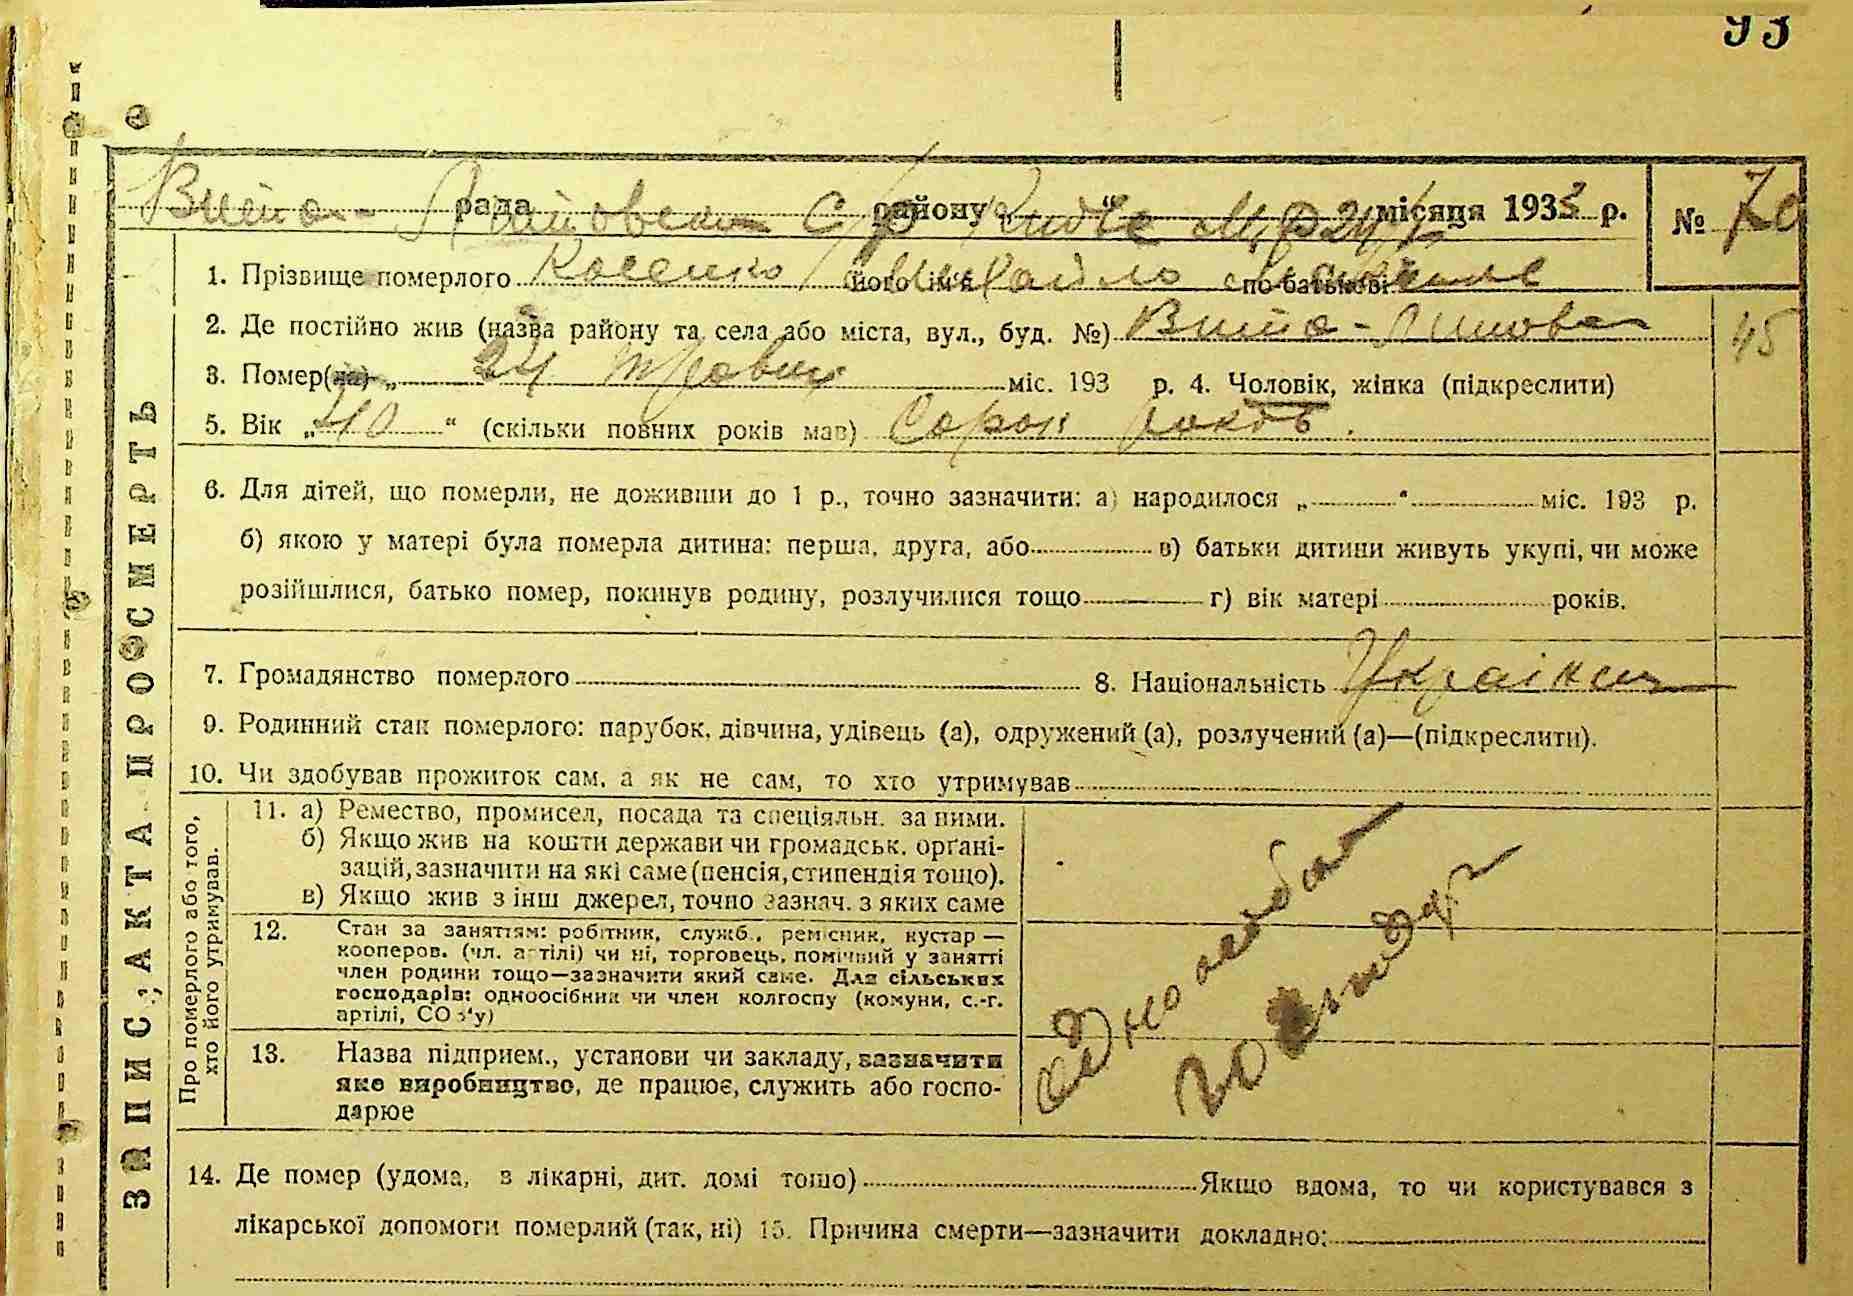 93
Вита- рада району „ “ місяця 1933 р.
№ 70
1. Прізвище померлого Косенко його ім'я Михайло по батькові
2. Де постійно жив (назва району та села або міста, вул., буд. №) Вита-
45
3. Помер(ла) „ 24 травня міс. 193 р. 4. Чоловік, жінка (підкреслити)
5. Вік „40“ (скільки повних років мав) Сорок років.
6. Для дітей, що померли, не доживши до 1 р., точно зазначити: а) народилося „ “ міс. 193 р.
б) якою у матері була померла дитина: перша, друга, або в) батьки дитини живуть укупі, чи може
розійшлися, батько помер, покинув родину, розлучилися тощо г) вік матері років.
7. Громадянство померлого 8. Національність Українец
9. Родинний стан померлого: парубок, дівчина, удівець (а), одружений (а), розлучений (а)—(підкреслити).
10. Чи здобував прожиток сам, а як не сам, то хто утримував
ЗАПИС АКТА ПРО СМЕРТЬ
Про померлого або того, хто його утримував.
11. а) Ремество, промисел, посада та спеціяльн. за ними.
б) Якщо жив на кошти держави чи громадськ. органі-
зацій, зазначити на які саме (пенсія, стипендія тощо).
в) Якщо жив з інш джерел, точно зазнач. з яких саме
12. Стан за заняттям: робітник, служб., ремісник, кустар—
кооперов. (чл. артілі) чи ні, торговець, помічний у занятті
член родини тощо—зазначити який саме. Для сільських
господарів: одноосібник чи член колгоспу (комуни, с.-г.
артілі, СОЗ'у)
13. Назва підприєм., установи чи закладу, зазначити
яке виробництво, де працює, служить або госпо-
дарює
14. Де помер (удома, в лікарні, дит. домі тощо) Якщо вдома, то чи користувався з
лікарської допомоги померлий (так, ні) 15. Причина смерти—зазначити докладно: